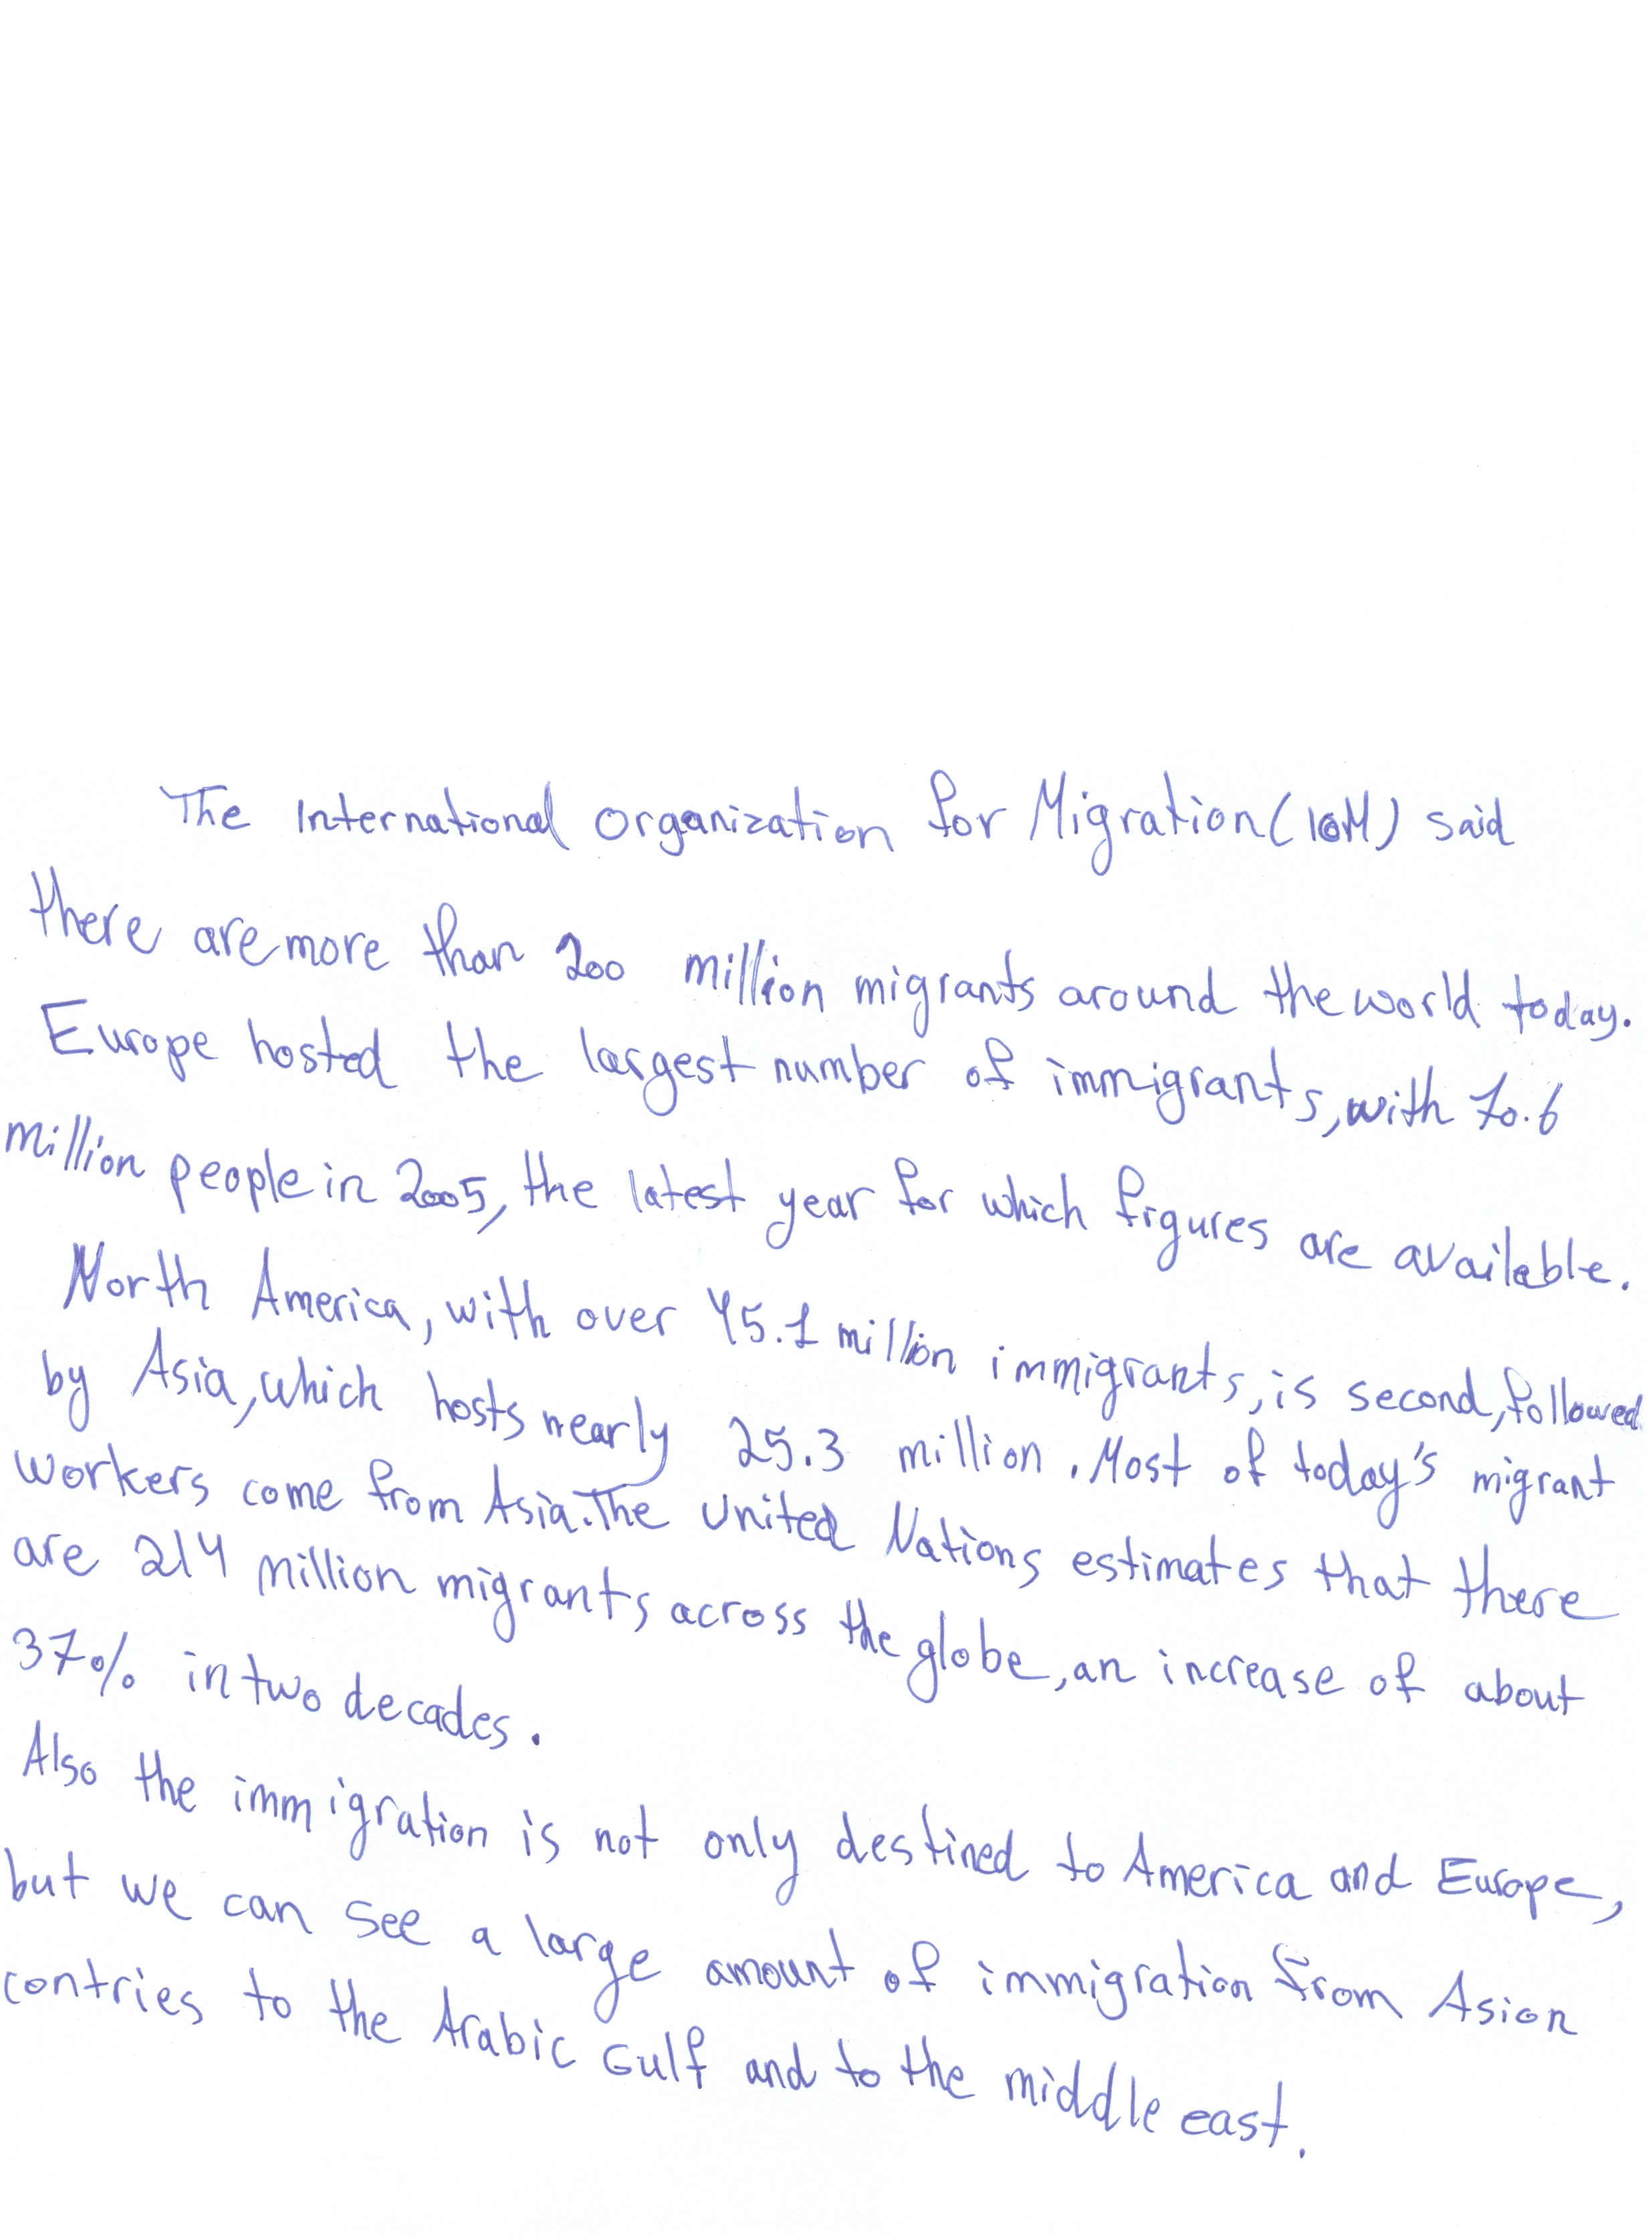 The International Organization for Migration (IOM) said
there are more than 200 million migrants around the world today.
Europe hosted the largest number of immigrants, with 70.6
million people in 2005, the latest year for which figures are available.
North America, with over 45.1 million immigrants, is second, followed
by Asia, which hosts nearly 25.3 million. Most of today's migrant
workers come from Asia. The United Nations estimates that there
are 214 million migrants across the globe, an increase of about
37% in two decades.
Also the immigration is not only destined to America and Europe,
but we can see a large amount of immigration from Asian
contries to the Arabic Gulf and to the middle east.